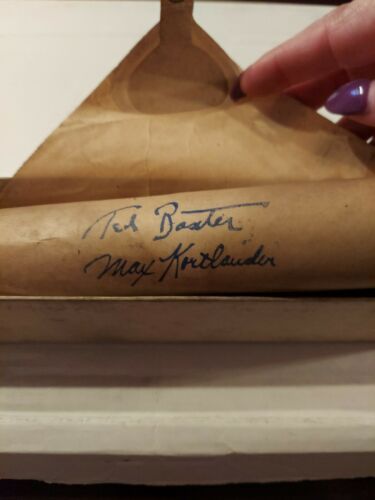 Ted Baxter
Max Kortlander